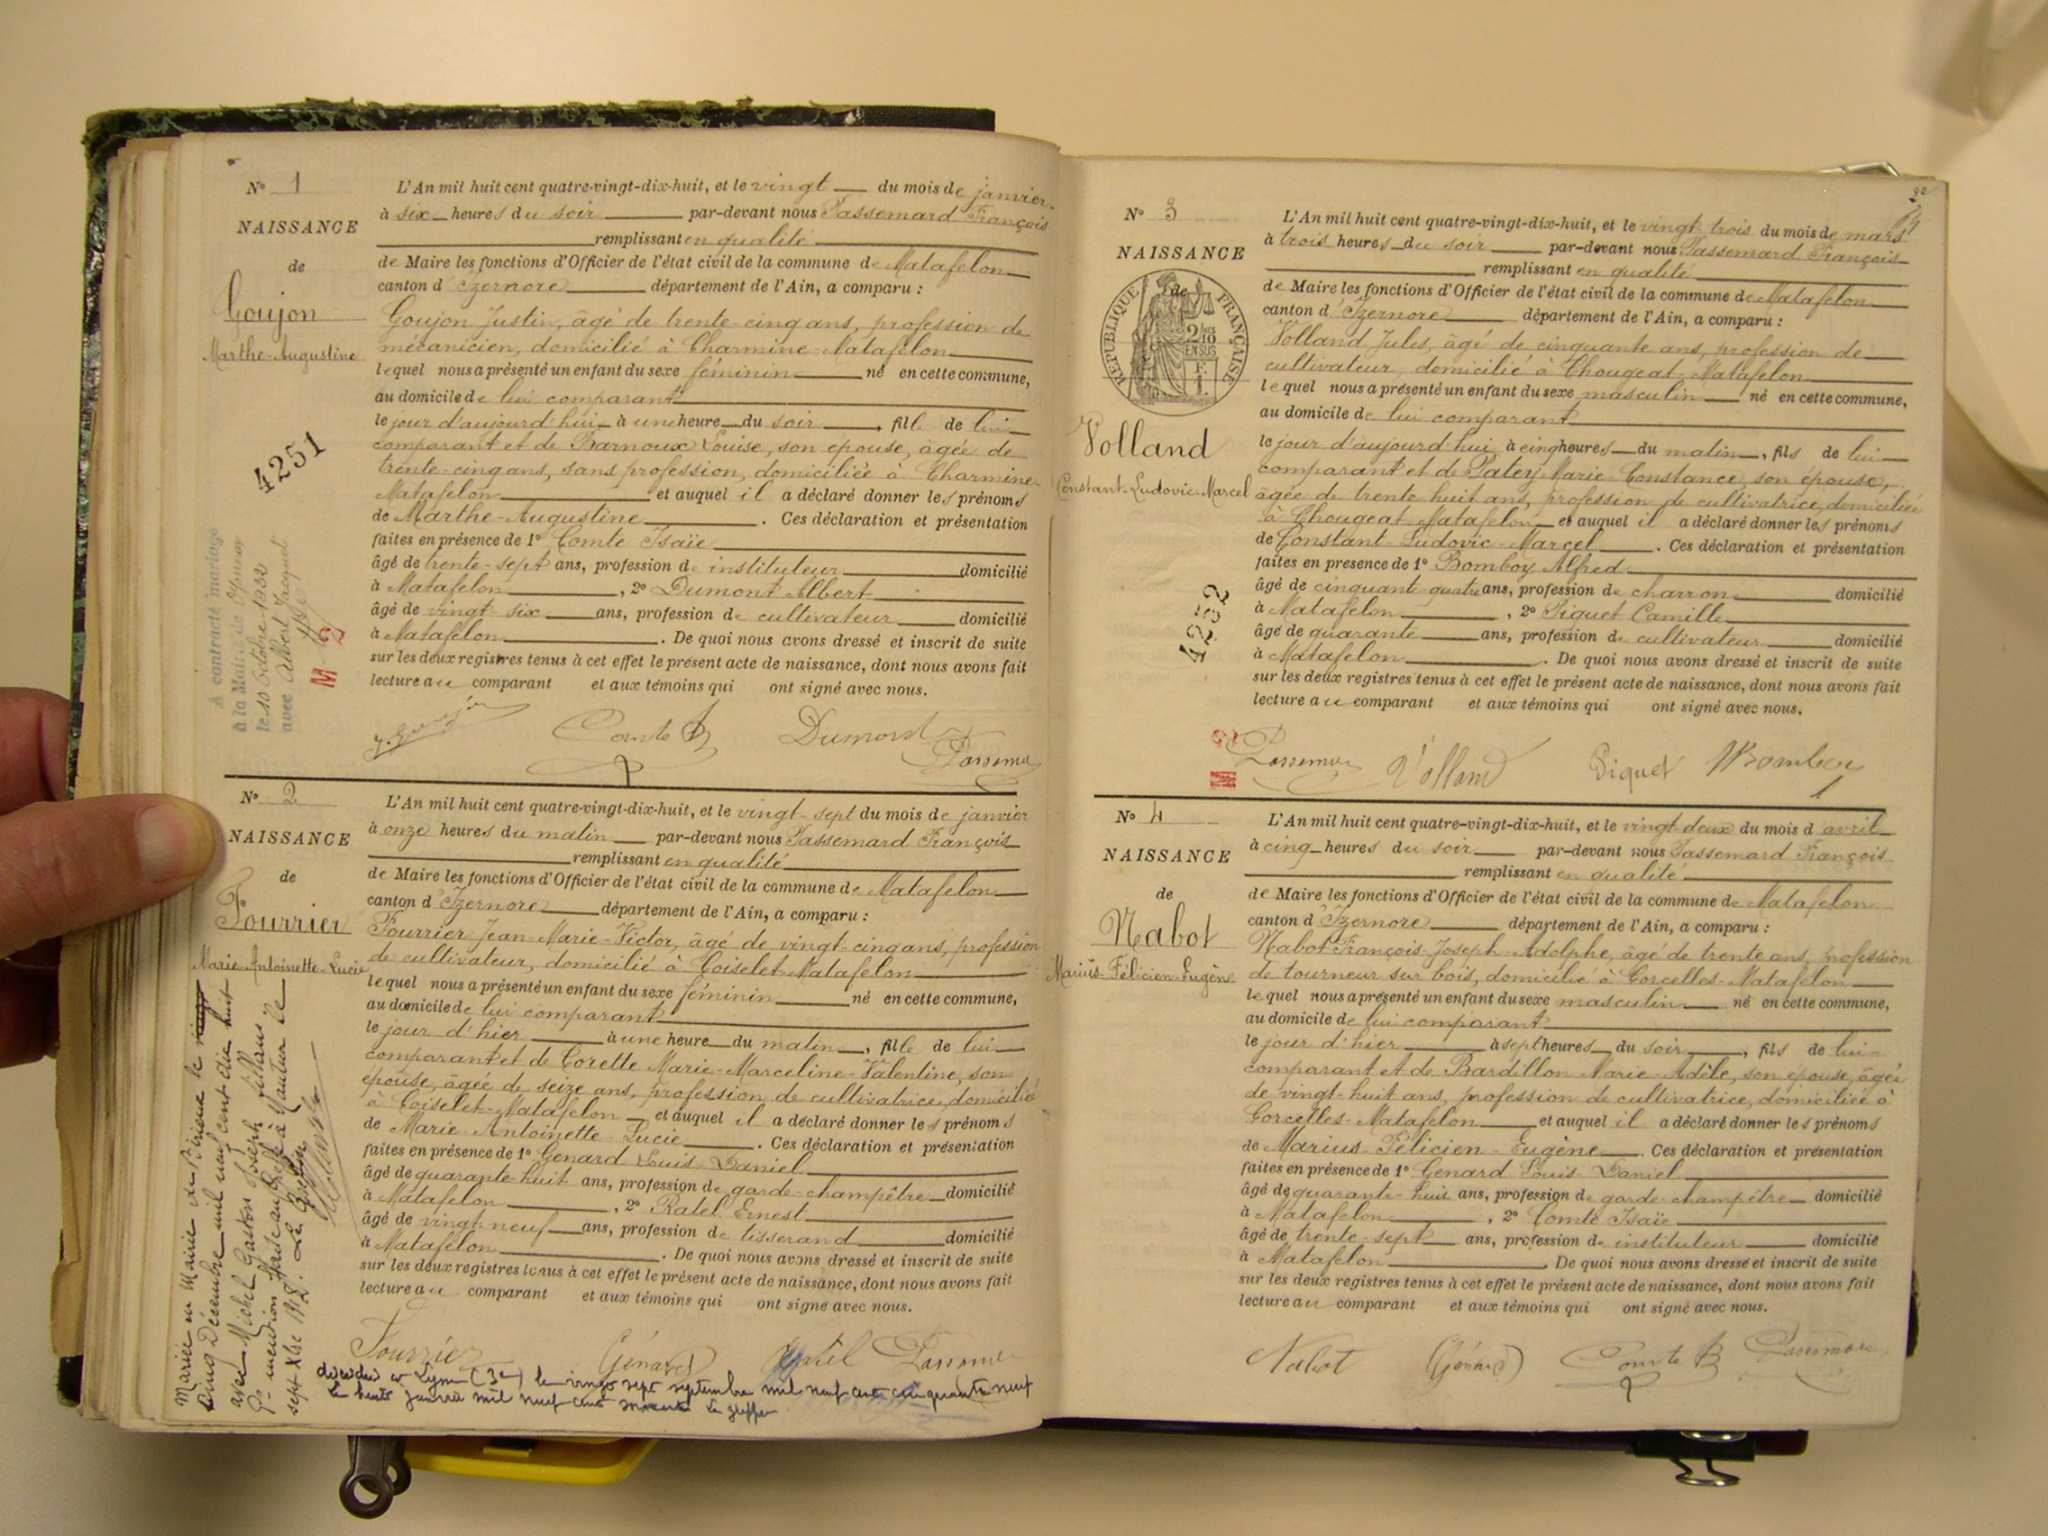 N° 1
NAISSANCE
de
Goujon
Marthe-Augustine
4251
A contracté mariage
à la Mairie de
le 10 Octobre 1922
avec Albert Jacquet
M 2
L'An mil huit cent quatre-vingt-dix-huit, et le vingt du mois de janvier
à six heures du soir par-devant nous Tassemard François
remplissant en qualité
de Maire les fonctions d'Officier de l'état civil de la commune de Matafelon
canton d'Izernore département de l'Ain, a comparu :
Goujon Justin, âgé de trente-cinq ans, profession de
mécanicien, domicilié à Charmine-Matafelon
lequel nous a présenté un enfant du sexe féminin né en cette commune,
au domicile de lui comparant
le jour d'aujourd'hui à une heure du soir, fille de lui
comparant et de Barnoux Louise, son épouse, âgée de
trente-cinq ans, sans profession, domiciliée à Charmine-
Matafelon et auquel il a déclaré donner les prénoms
de Marthe-Augustine. Ces déclaration et présentation
faites en présence de 1° Comte Isaïe
âgé de trente-sept ans, profession de instituteur domicilié
à Matafelon, 2° Dumont Albert
âgé de vingt-six ans, profession de cultivateur domicilié
à Matafelon. De quoi nous avons dressé et inscrit de suite
sur les deux registres tenus à cet effet le présent acte de naissance, dont nous avons fait
lecture au comparant et aux témoins qui ont signé avec nous.
J. Goujon Comte Dumont
Tassemard
N° 2
NAISSANCE
de
Fourrier
Marie-Antoinette-Lucie
Mariée en Mairie de Brieux le
cinq Décembre mil neuf cent dix huit
avec Michel Gaston Joseph
mention à Nantua le
sept Xbre 1918. Le Greffier
L'An mil huit cent quatre-vingt-dix-huit, et le vingt-sept du mois de janvier
à onze heures du matin par-devant nous Tassemard François
remplissant en qualité
de Maire les fonctions d'Officier de l'état civil de la commune de Matafelon
canton d'Izernore département de l'Ain, a comparu :
Fourrier Jean-Marie-Victor, âgé de vingt-cinq ans, profession
de cultivateur, domicilié à Coiselet-Matafelon
lequel nous a présenté un enfant du sexe féminin né en cette commune,
au domicile de lui comparant
le jour d'hier à une heure du matin, fille de lui
comparant et de Corette Marie-Marceline-Valentine, son
épouse, âgée de seize ans, profession de cultivatrice, domiciliée
à Coiselet-Matafelon et auquel il a déclaré donner les prénoms
de Marie-Antoinette-Lucie. Ces déclaration et présentation
faites en présence de 1° Génard Louis-Daniel
âgé de quarante-huit ans, profession de garde-champêtre domicilié
à Matafelon, 2° Ratel Ernest
âgé de vingt-neuf ans, profession de tisserand domicilié
à Matafelon. De quoi nous avons dressé et inscrit de suite
sur les deux registres tenus à cet effet le présent acte de naissance, dont nous avons fait
lecture au comparant et aux témoins qui ont signé avec nous.
Fourrier Génard Tassemard
décédée à Lyon (3e) le vingt sept septembre mil neuf cent cinquante neuf
Le huit janvier mil neuf cent soixante Le greffier
N° 3
NAISSANCE
de
RÉPUBLIQUE FRANÇAISE
2/10 EN SUS
Volland
Constant-Ludovic-Marcel
4252
L'An mil huit cent quatre-vingt-dix-huit, et le vingt-trois du mois de mars
à trois heures du soir par-devant nous Tassemard François
remplissant en qualité
de Maire les fonctions d'Officier de l'état civil de la commune de Matafelon
canton d'Izernore département de l'Ain, a comparu :
Volland Jules, âgé de cinquante ans, profession de
cultivateur, domicilié à Chougeat-Matafelon
lequel nous a présenté un enfant du sexe masculin né en cette commune,
au domicile de lui comparant
le jour d'aujourd'hui à cinq heures du matin, fils de lui
comparant et de Patey Marie-Constance, son épouse,
âgée de trente huit ans, profession de cultivatrice, domiciliée
à Chougeat-Matafelon et auquel il a déclaré donner les prénoms
de Constant-Ludovic-Marcel. Ces déclaration et présentation
faites en présence de 1° Bomboy Alfred
âgé de cinquante quatre ans, profession de charron domicilié
à Matafelon, 2° Piquet Camille
âgé de quarante ans, profession de cultivateur domicilié
à Matafelon. De quoi nous avons dressé et inscrit de suite
sur les deux registres tenus à cet effet le présent acte de naissance, dont nous avons fait
lecture au comparant et aux témoins qui ont signé avec nous.
Tassemard Volland Piquet Bomboy
N° 4
NAISSANCE
de
Nabot
Marius-Félicien-Eugène
L'An mil huit cent quatre-vingt-dix-huit, et le vingt-deux du mois d'avril
à cinq heures du soir par-devant nous Tassemard François
remplissant en qualité
de Maire les fonctions d'Officier de l'état civil de la commune de Matafelon
canton d'Izernore département de l'Ain, a comparu :
Nabot François-Joseph-Adolphe, âgé de trente ans, profession
de tourneur sur bois, domicilié à Corcelles-Matafelon
lequel nous a présenté un enfant du sexe masculin né en cette commune,
au domicile de lui comparant
le jour d'hier à sept heures du soir, fils de lui
comparant et de Bardillon Marie-Adèle, son épouse, âgée
de vingt-huit ans, profession de cultivatrice, domiciliée à
Corcelles-Matafelon et auquel il a déclaré donner les prénoms
de Marius-Félicien-Eugène. Ces déclaration et présentation
faites en présence de 1° Génard Louis-Daniel
âgé de quarante-huit ans, profession de garde-champêtre domicilié
à Matafelon, 2° Comte Isaïe
âgé de trente-sept ans, profession de instituteur domicilié
à Matafelon. De quoi nous avons dressé et inscrit de suite
sur les deux registres tenus à cet effet le présent acte de naissance, dont nous avons fait
lecture au comparant et aux témoins qui ont signé avec nous.
Nabot Génard Comte Tassemard